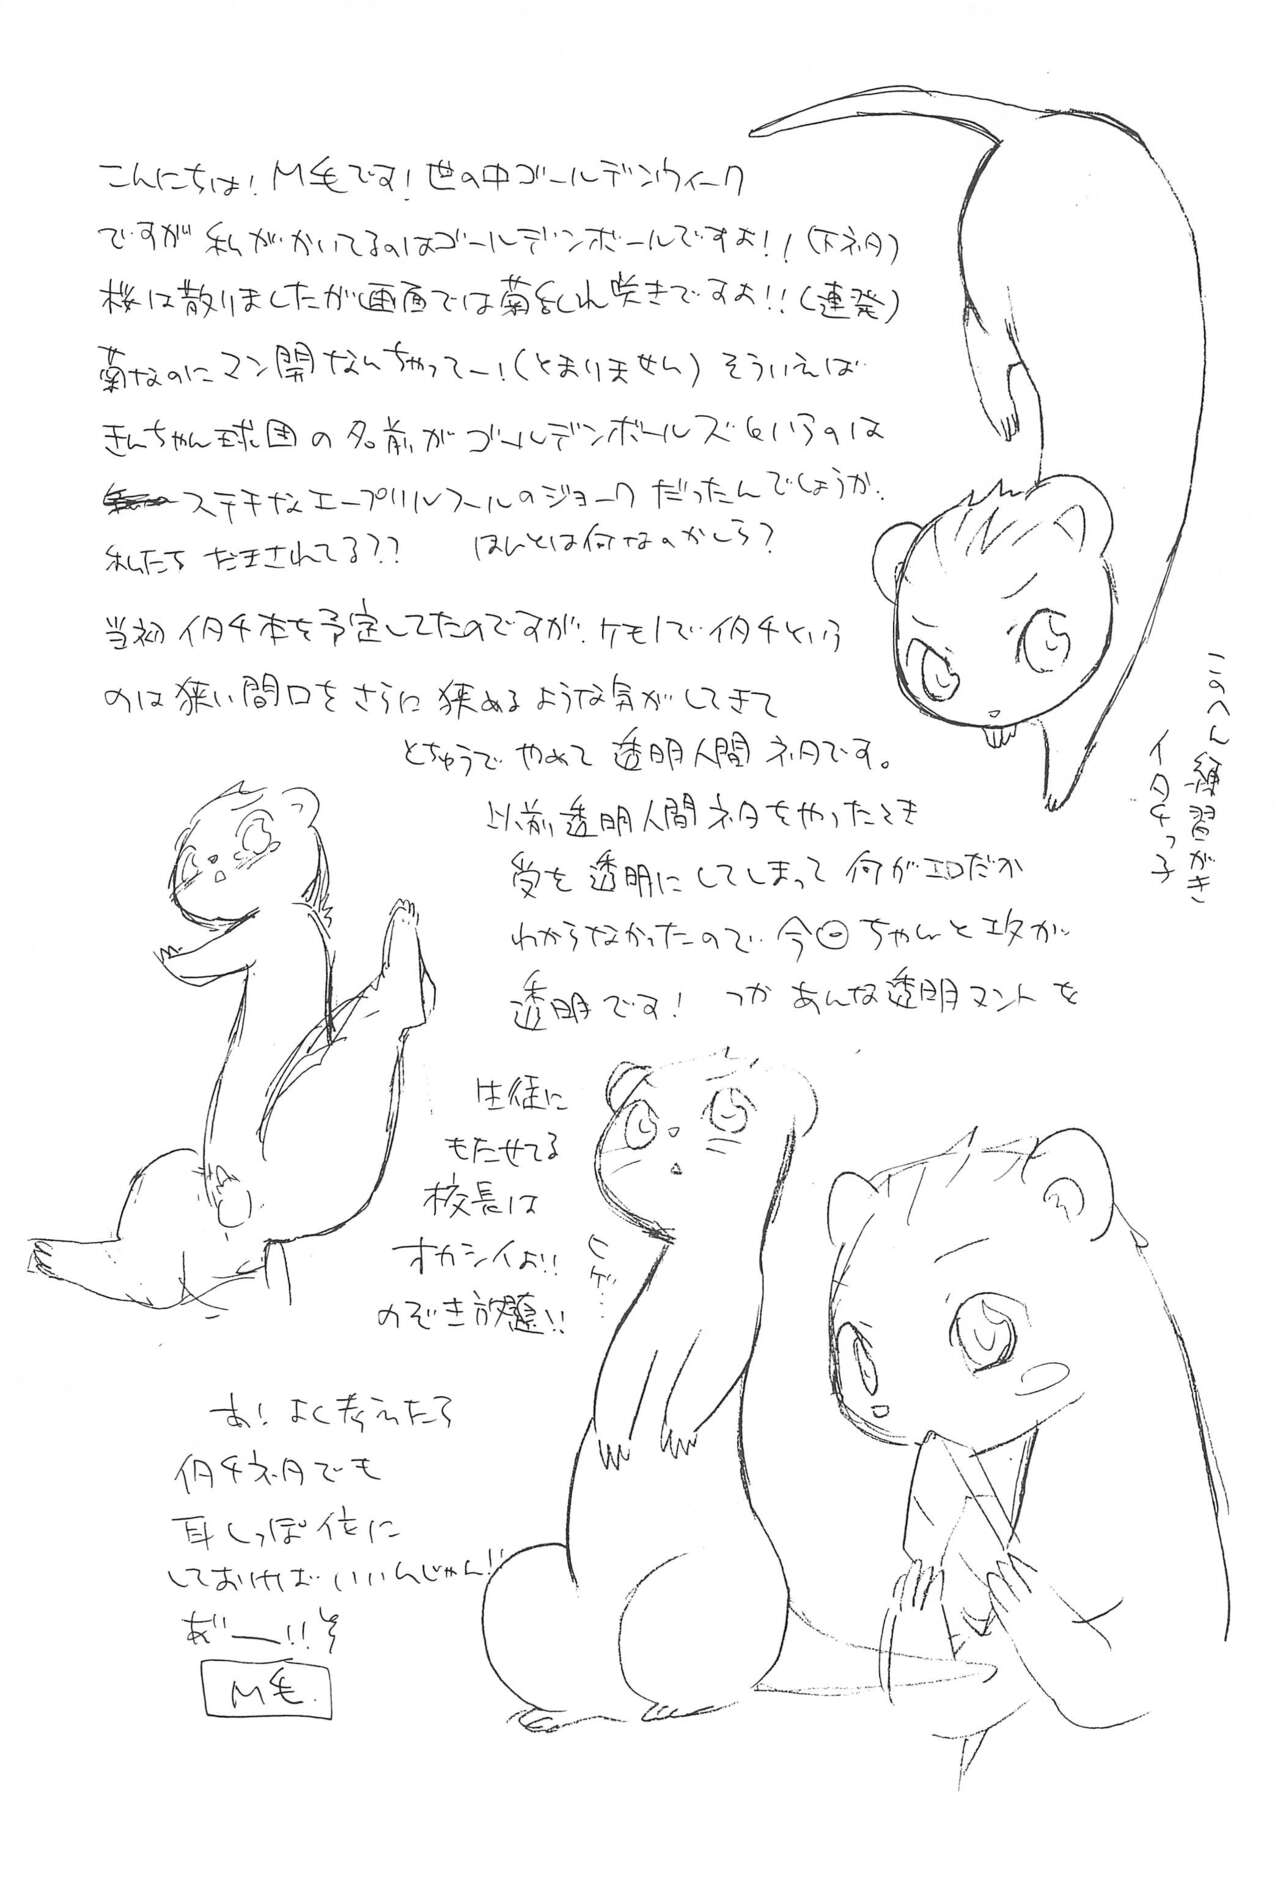 こんにちは! M毛です! 世の中ゴールデンウィーク
ですが 私がかいてるのはゴールデンボールですよ!!(下ネタ)
桜は散りましたが画面では菊乱れ咲きですよ!!(連発)
菊なのにマン開なんちゃってー!(とまりません) そういえば
きんちゃん球団の名前がゴールデンボールズというのは
ステキなエープリルフールのジョークだったんでしょうか.
私たち だまされてる?? ほんとは何なのかしら?
当初 イタチ本を予定してたのですが、ケモノで イタチという
のは狭い間口をさらに狭めるような気がしてきて
とちゅうで やめて 透明人間 ネタです。
以前 透明人間 ネタをやったとき
受を 透明にしてしまって 何がエロだか
わからなかったので、今回ちゃんと攻が
透明です! つか あんな透明マントを
生徒に
もたせてる
校長は
オカシイよ!!
のぞき放題!!
ヒゲ…
このへん練習がき
イタチっ子
あ! よく考えたら
イタチネタでも
耳しっぽ化に
しておけば いいんじゃん!!
あ゛ー!!
M毛.